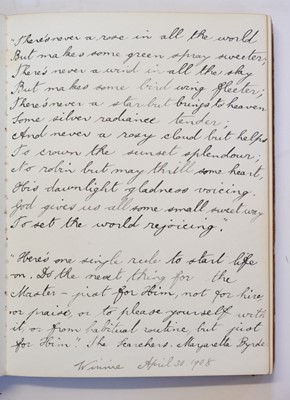 "There's never a rose in all the world
But makes some green spray sweeter;
There's never a wind in all the sky
But makes some bird wing fleeter;
There's never a star but brings to heaven
Some silver radiance tender;
And never a rosy cloud but helps
To crown the sunset splendour;
No robin but may thrill some heart,
His dawnlight gladness voicing.
God gives us all some small sweet way
To set the world rejoicing."
"Here's one single rule to start life
on. Do the next thing for the
Master – just for Him, not for hire,
or praise, or to please yourself with
it, or from habitual routine, but just
for Him." The Searchers. Margaretta Byrde
Winnie April 30. 1908